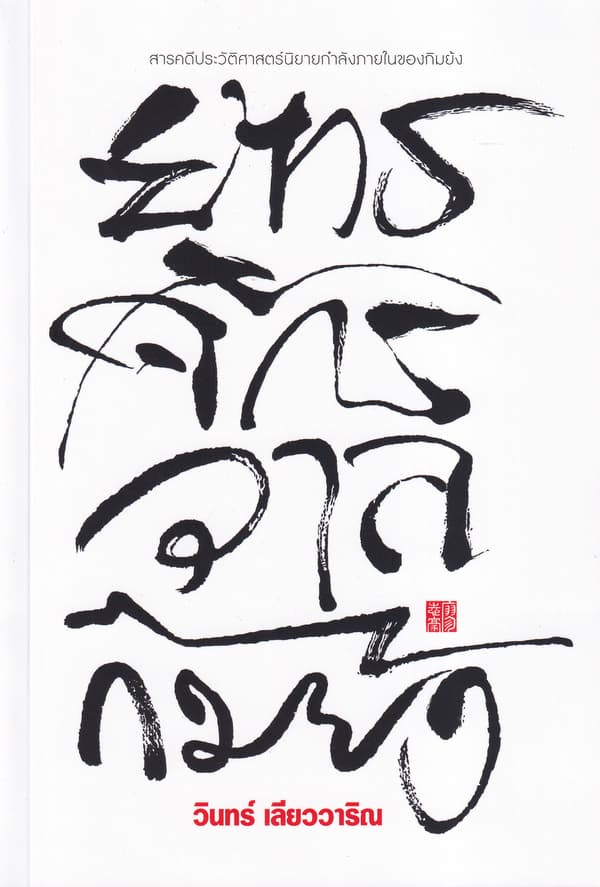 สารคดีประวัติศาสตร์นิยายกำลังภายในของกิมย้ง
ยุทธ
จักร
วาล
กิมย้ง
วินทร์ เลียววาริณ